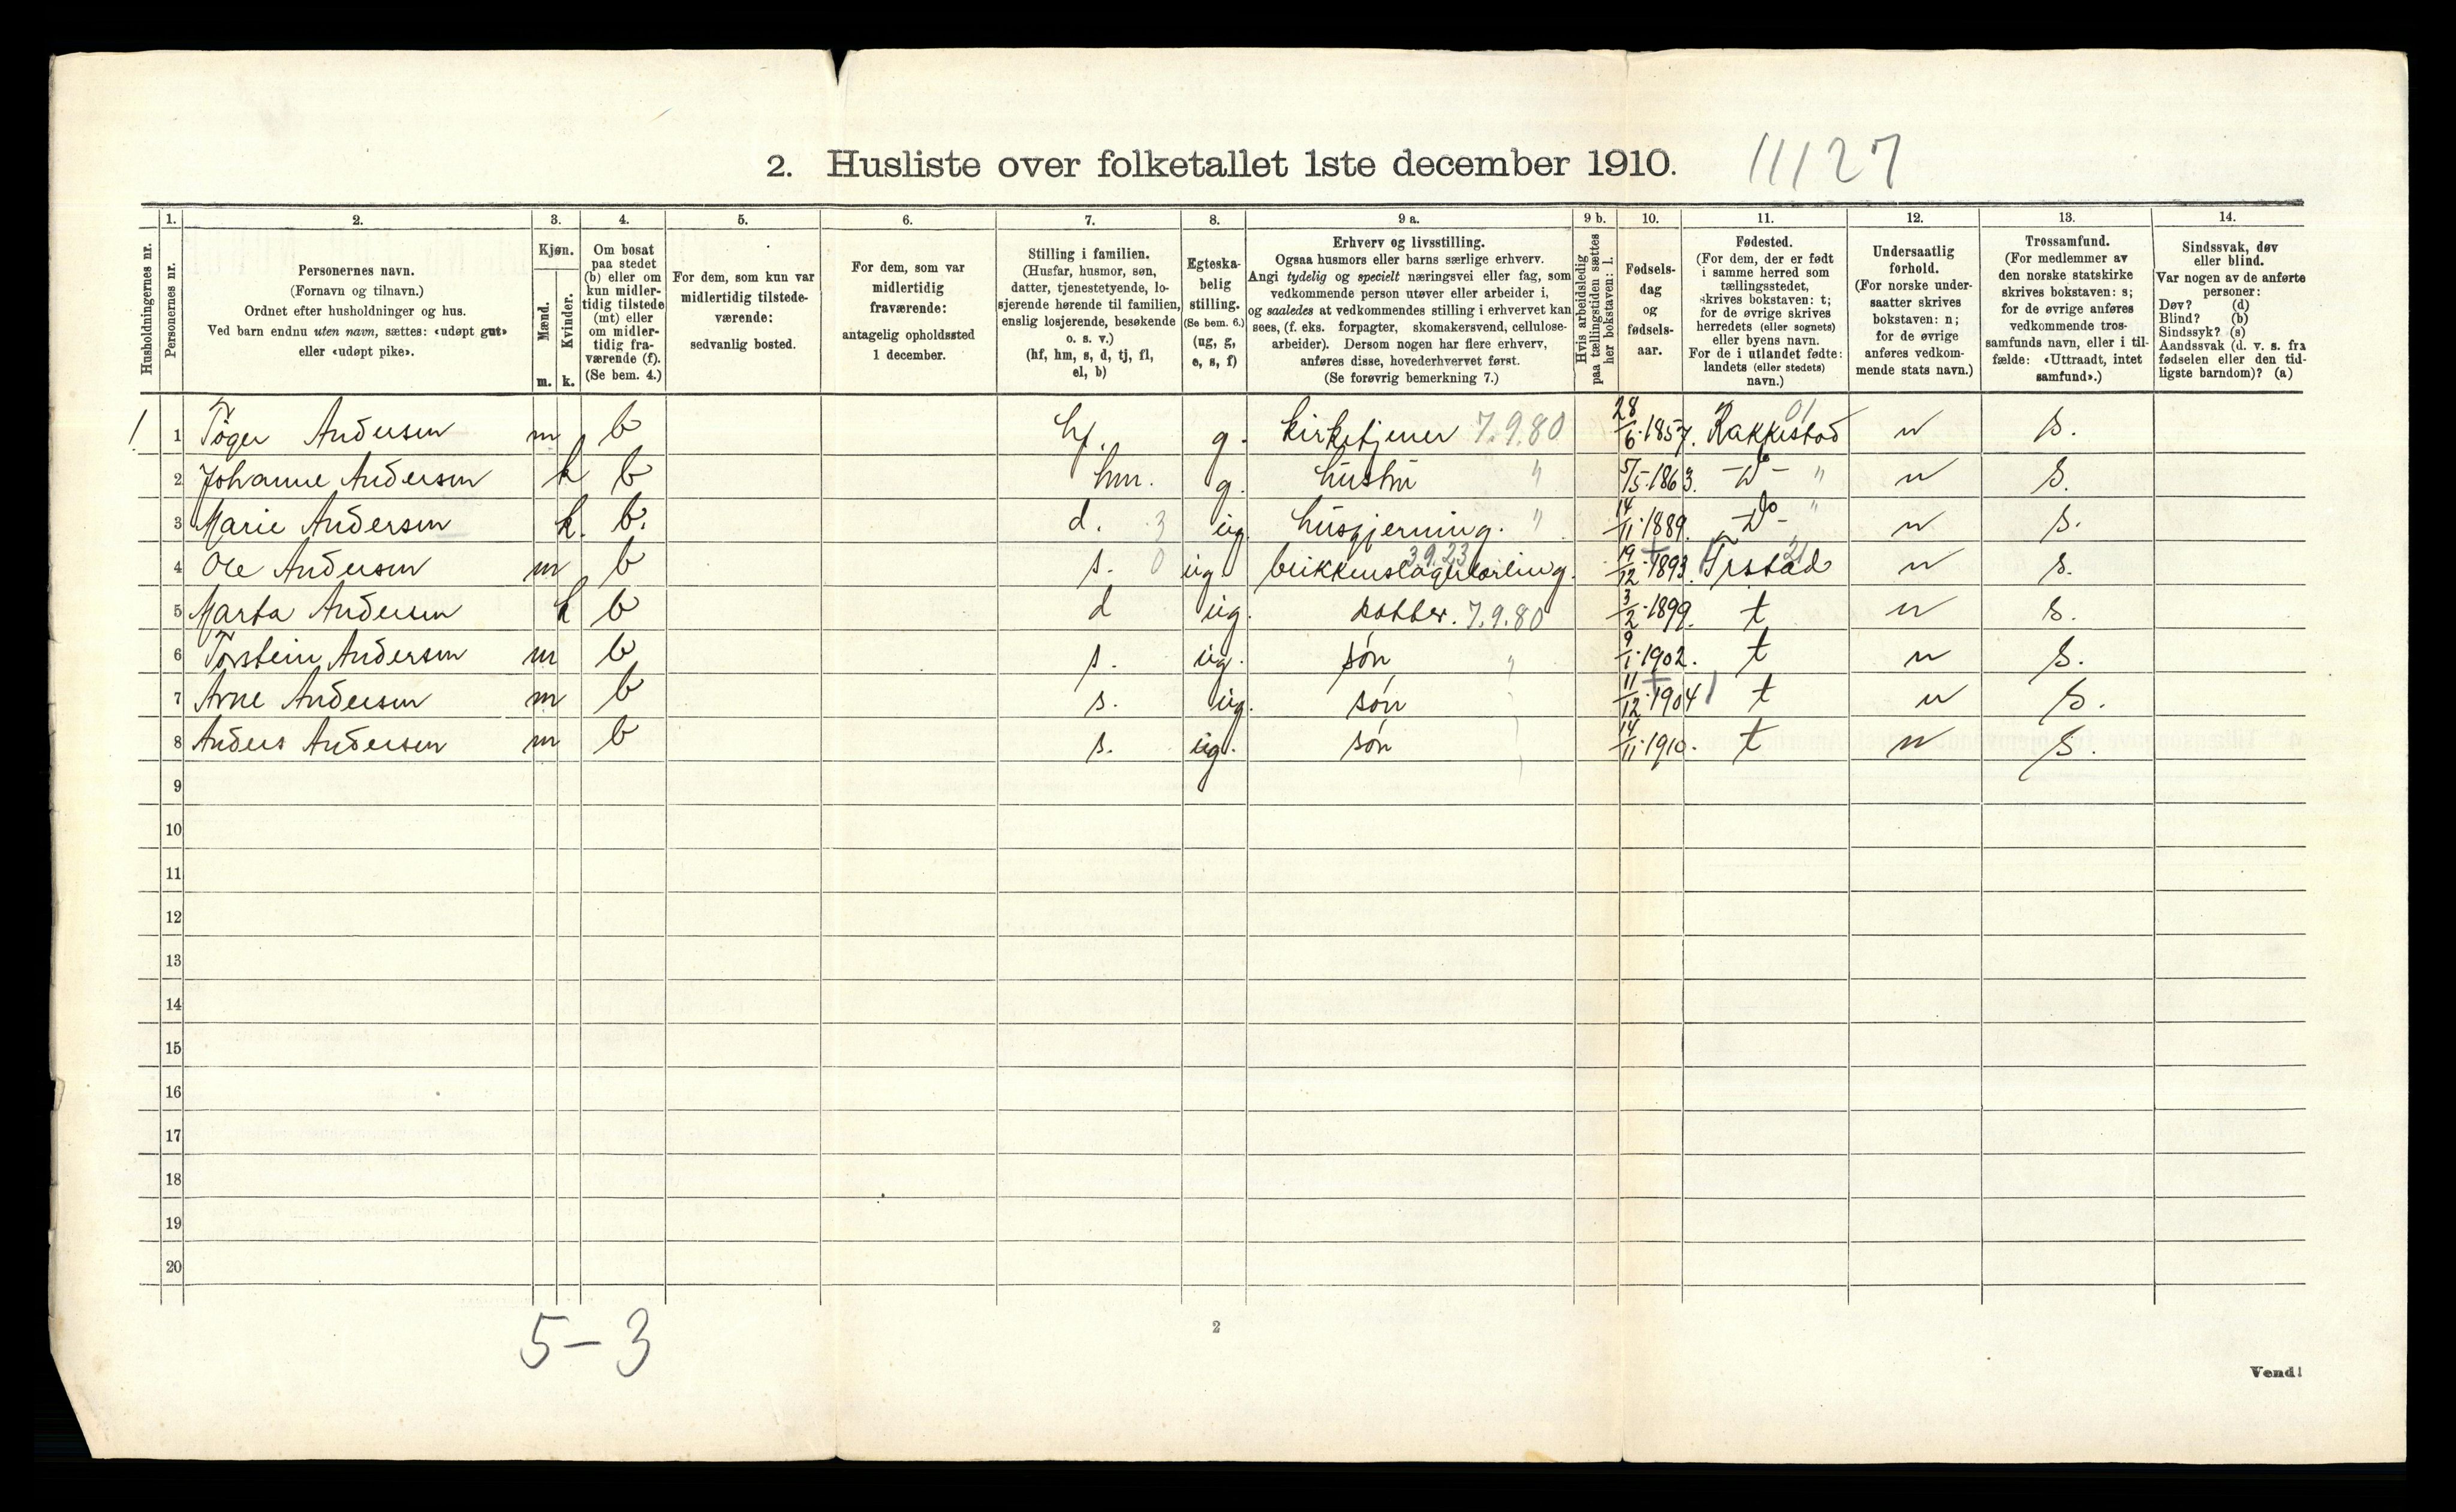 2. Husliste over folketallet 1ste december 1910. 11127
1. 2. 3. 4. 5. 6. 7. 8. 9 a. 9 b. 10. 11. 12. 13. 14.
Husholdningernes nr.
Personernes nr.
Personernes navn.
(Fornavn og tilnavn.)
Ordnet efter husholdninger og hus.
Ved barn endnu uten navn, sættes: «udøpt gut»
eller «udøpt pike».
Kjøn.
Mænd.
Kvinder.
m. k.
Om bosat
paa stedet
(b) eller om
kun midler-
tidig tilstede
(mt) eller
om midler-
tidig fra-
værende (f).
(Se bem. 4.)
For dem, som kun var
midlertidig tilstede-
værende:
sedvanlig bosted.
For dem, som var
midlertidig
fraværende:
antagelig opholdssted
1 december.
Stilling i familien.
(Husfar, husmor, søn,
datter, tjenestetyende, lo-
sjerende hørende til familien,
enslig losjerende, besøkende
o. s. v.)
(hf, hm, s, d, tj, fl,
el, b)
Egteska-
belig
stilling.
(Se bem. 6.)
(ug, g,
e, s, f)
Erhverv og livsstilling.
Ogsaa husmors eller barns særlige erhverv.
Angi tydelig og specielt næringsvei eller fag, som
vedkommende person utøver eller arbeider i,
og saaledes at vedkommendes stilling i erhvervet kan
sees, (f. eks. forpagter, skomakersvend, cellulose-
arbeider). Dersom nogen har flere erhverv,
anføres disse, hovederhvervet først.
(Se forøvrig bemerkning 7.)
Hvis arbeidsledig
paa tællingstiden sættes
her bokstaven: l.
Fødsels-
dag
og
fødsels-
aar.
Fødested.
(For dem, der er født
i samme herred som
tællingsstedet,
skrives bokstaven: t;
for de øvrige skrives
herredets (eller sognets)
eller byens navn.
For de i utlandet fødte:
landets (eller stedets)
navn.)
Undersaatlig
forhold.
(For norske under-
saatter skrives
bokstaven: n;
for de øvrige
anføres vedkom-
mende stats navn.)
Trossamfund.
(For medlemmer av
den norske statskirke
skrives bokstaven: s;
for de øvrige anføres
vedkommende tros-
samfunds navn, eller i til-
fælde: «Uttraadt, intet
samfund».)
Sindssvak, døv
eller blind.
Var nogen av de anførte
personer:
Døv? (d)
Blind? (b)
Sindssyk? (s)
Aandssvak (d. v. s. fra
fødselen eller den tid-
ligste barndom)? (a)
1 1 Töger Andersen m b hf. g. kirketjener 7.9.80 28/6.1857. Rakkestad 01 n s.
2 Johanne Andersen k b hm. g. hustru " 5/5.1863. -Do- " n s.
3 Marie Andersen k. b. d. 3 ug. husgjerning. " 14/11.1889. -Do- " n s.
4 Ole Andersen m b s. 0 ug. 3.9.23 19/12.1893. Trstad 21 n s.
5 Marta Andersen k b d ug. datter. 7.9.80 3/2.1899. t n s.
6 Torstein Andersen m b s. ug. søn " 9/1.1902. t n s.
7 Arne Andersen m b s. ug. søn 11/12.1904 t n s.
8 Anders Andersen m b s. ug. søn 14/11.1910. t n s.
9
10
11
12
13
14
15
16
17
18
19
20
5-3
2
Vend!